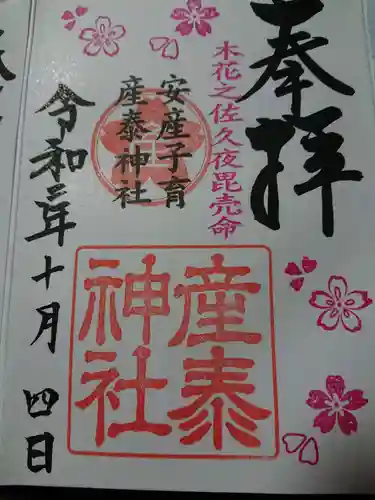 奉拝
木花之佐久夜毘売命
安産子育
産泰神社
産泰
神社
令和二年十月四日